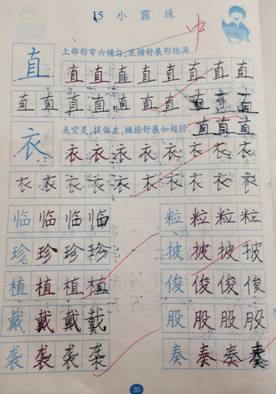 15 小露珠
中
直
上部形窄六横匀,底横舒展形饱满。
直直直直直直直直
直直直直直直直直直直
直直直
衣
点空灵,提偏左,撇捺舒展如翅膀
衣衣衣衣衣衣衣衣
衣衣衣衣衣衣衣衣衣衣
临临临临 粒粒粒粒
珍珍珍珍 披披披披
植植植植 俊俊俊俊
戴戴戴戴 股股股股
袭袭袭袭 奏奏奏奏
30